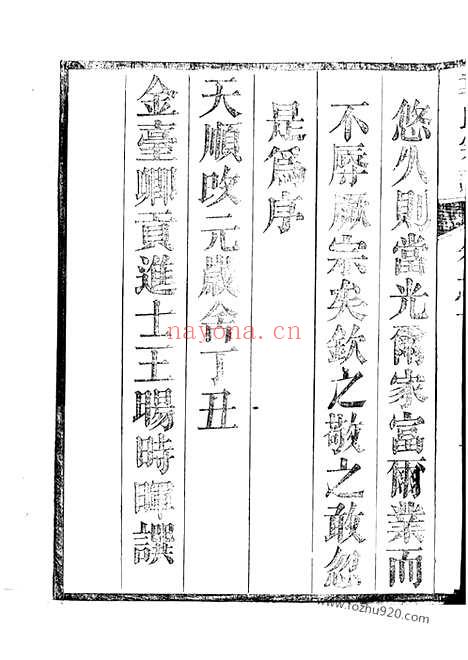 悠久則當光爾家富爾業而
不辱厥宗矣欽之敬之敢忽
是為序
天順改元歲舍丁丑
金臺鄉貢進士王暘時暉譔
nayona.cn
www.fozhu920.com